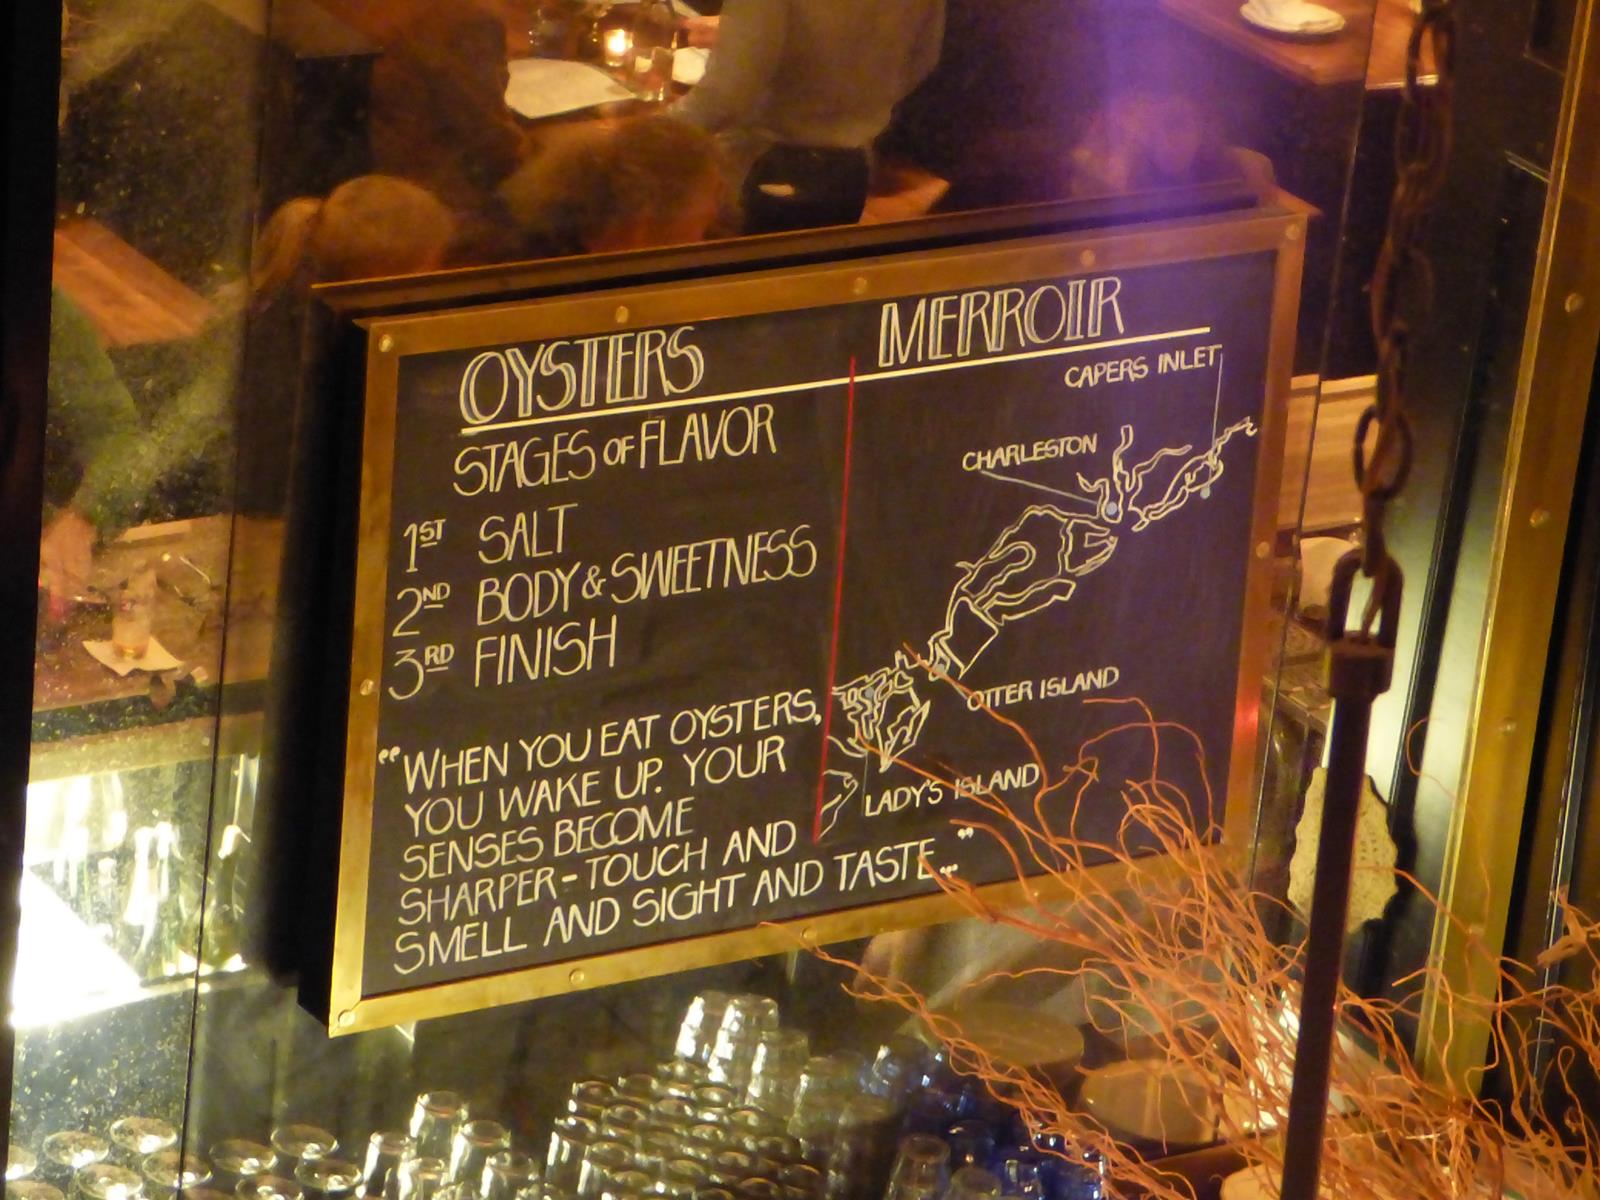 OYSTERS
STAGES OF FLAVOR
1ST SALT
2ND BODY & SWEETNESS
3RD FINISH
"WHEN YOU EAT OYSTERS,
YOU WAKE UP. YOUR
SENSES BECOME
SHARPER-TOUCH AND
SMELL AND SIGHT AND TASTE..."
MERROIR
CAPERS INLET
CHARLESTON
OTTER ISLAND
LADY'S ISLAND